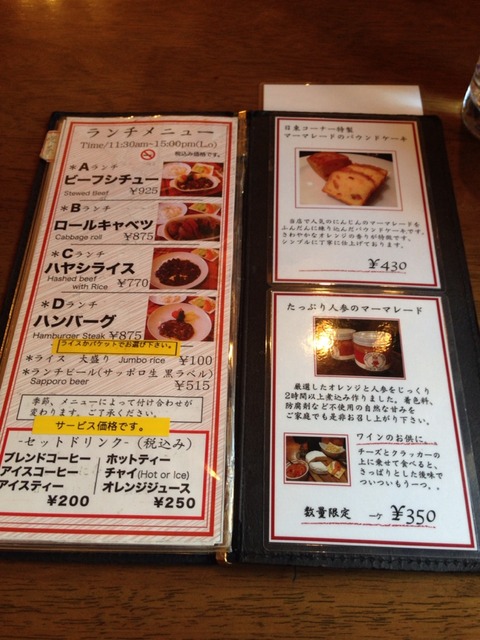 ランチメニュー
Time/11:30am~15:00pm(L.o)
税込み価格です。
*Aランチ
ビーフシチュー
Stewed Beef ¥925
*Bランチ
ロールキャベツ
Cabbage roll ¥875
*Cランチ
ハヤシライス
Hashed beef with Rice ¥770
*Dランチ
ハンバーグ
Hamburger Steak ¥875
ライスかバケットでお選び下さい。
*ライス 大盛り Jumbo rice ¥100
*ランチビール(サッポロ生 黒ラベル)
Sapporo beer ¥515
季節、メニューによって付け合わせが
変わります。ご了承ください。
サービス価格です。
-セットドリンク-(税込み)
ブレンドコーヒー
アイスコーヒー
アイスティー
¥200
ホットティー
チャイ(Hot or Ice)
オレンジジュース
¥250
日東コーナー特製
マーマレードのパウンドケーキ
当店で人気のにんじんのマーマレードを
ふんだんに練り込んだパウンドケーキです。
さわやかなオレンジの香りが特徴です。
シンプルに丁寧に仕上げております。
¥430
たっぷり人参のマーマレード
厳選したオレンジと人参をじっくり
2時間以上煮込み作りました。着色料、
防腐剤など不使用の自然な甘みを
ご家庭でも是非お召し上がり下さい。
ワインのお供に。
チーズとクラッカーの
上に乗せて食べると、
さっぱりとした後味で
ついついもう一つ。。
数量限定 一ケ ¥350